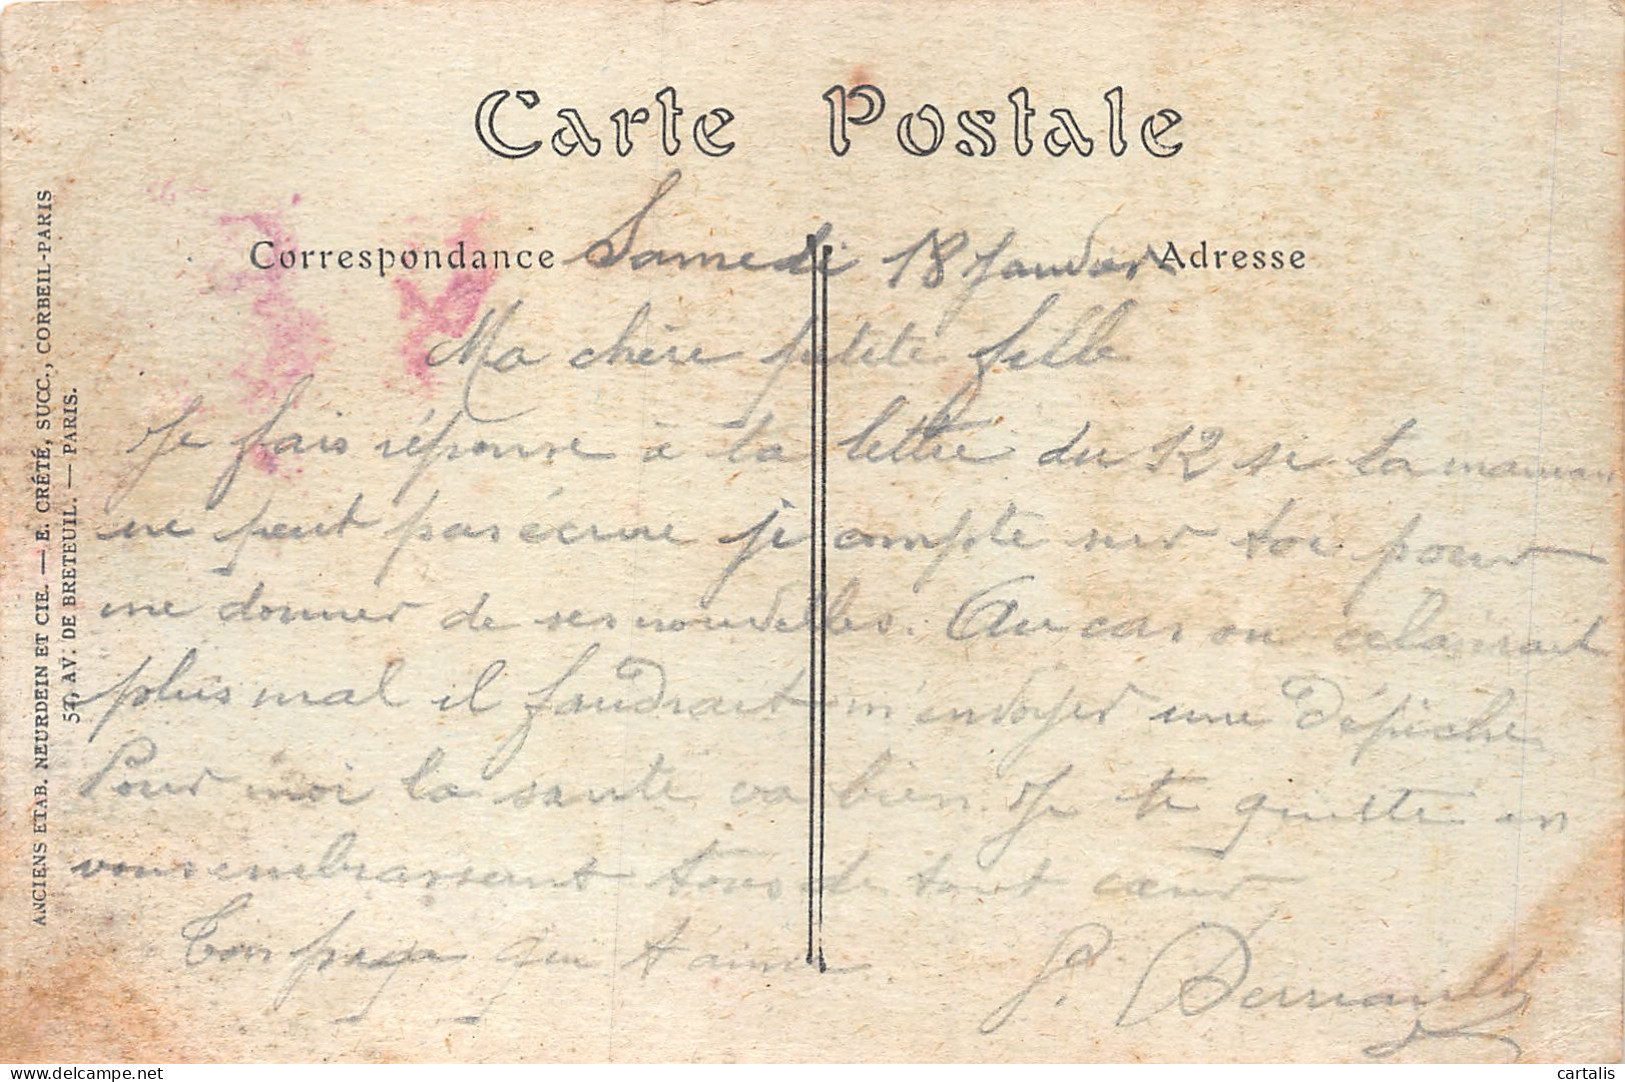 Carte Postale
Correspondance
Adresse
Samedi 18 Janvier
Ma chère petite fille
Je fais réponse à ta lettre du 12 si ta maman
ne peut pas écrire je compte sur toi pour
me donner de ses nouvelles. Au cas ou cela irait
plus mal il faudrait m'envoyer une dépêche
Pour moi la santé va bien. Je te quitte en
vous embrassant tous de tout cœur
Ton papa qui t'aime
P.
ANCIENS ETAB. NEURDEIN ET CIE. — E. CRÉTÉ, SUCC., CORBEIL-PARIS
57, AV. DE BRETEUIL. — PARIS.
www.delcampe.net
cartalis